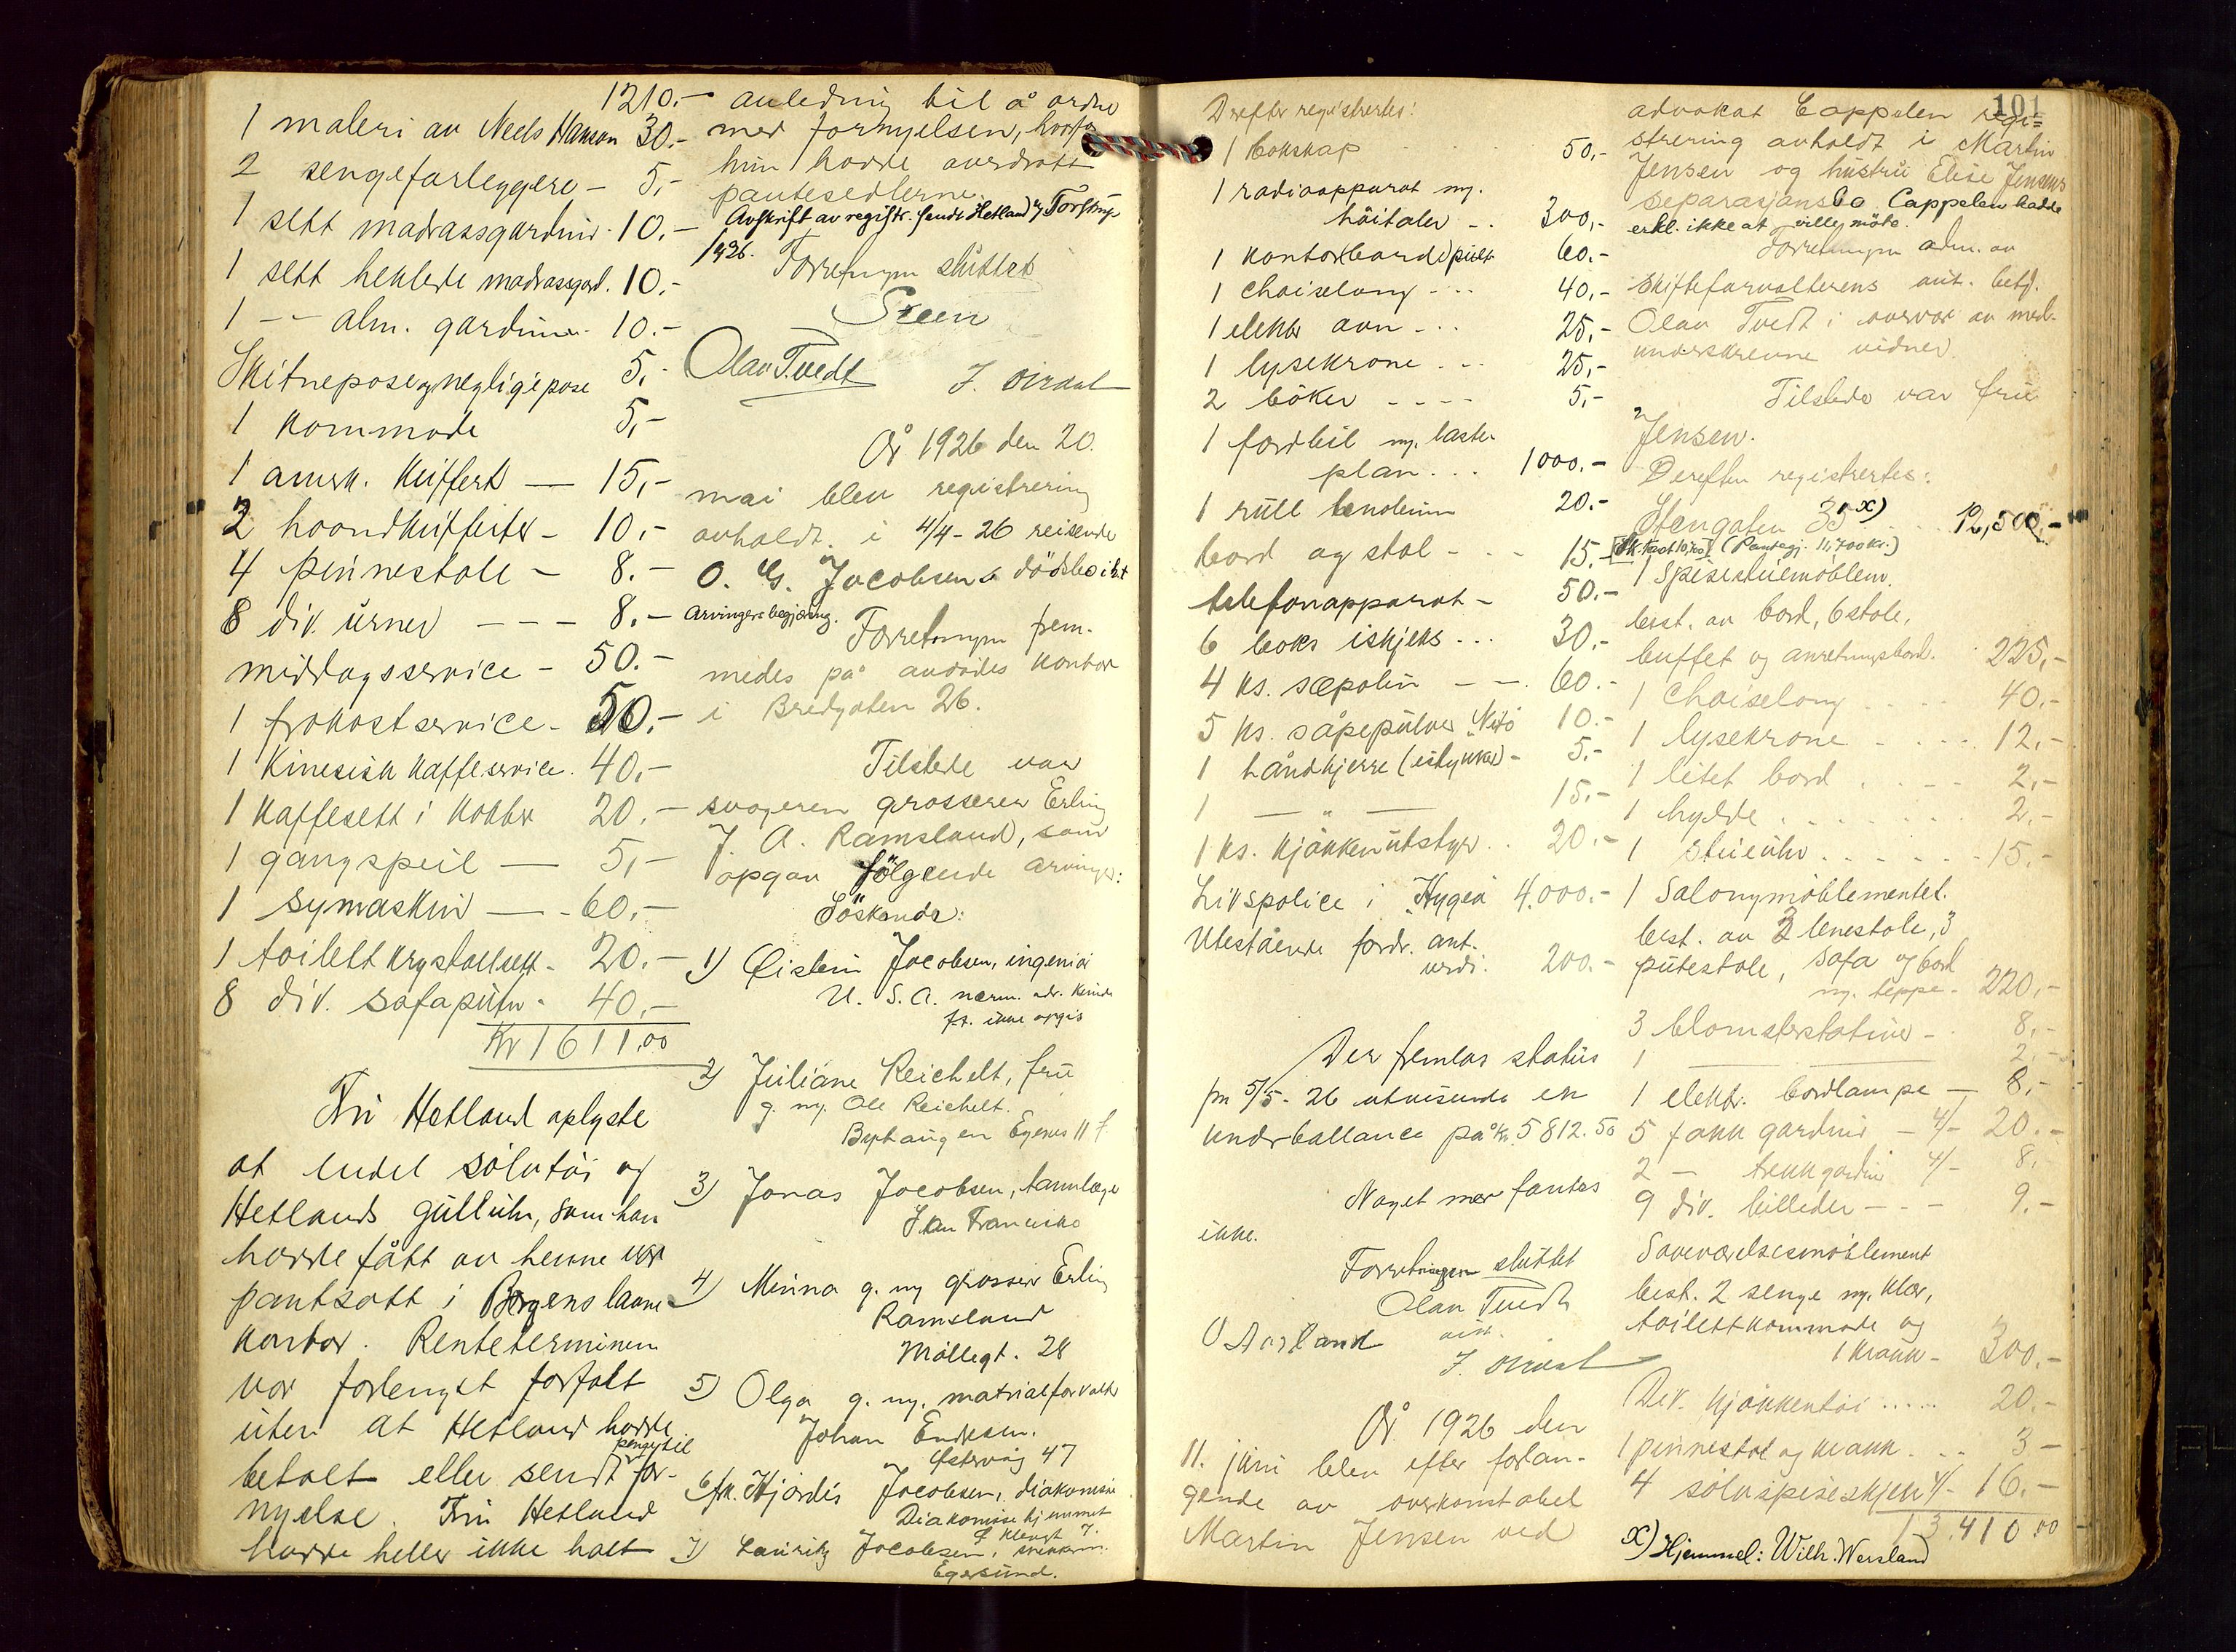 1210.-
1 maleri av Neels Hansen 30.-
2 sengeforleggere - 5,-
1 sett madrassgardiner 10.-
1 sett heklede madrassgard. 10.-
1 -- alm. gardiner 10.-
Skitnepose og negligépose 5,-
1 kommode 5,-
1 amerk. kuffert — 15,-
2 haandkufferter - 10,-
4 pinnestole - 8.-
8 div. urner --- 8.-
middagsservice - 50.-
1 frokostservice - 50.-
1 kinesisk kaffeservice. 40,-
1 kaffesett i kobber 20.-
1 gangspeil — 5,-
1 symaskin — 60,-
1 toilett krystallsett - 20.-
8 div. sofaputer - 40,-
Kr 1611.00
Fru Hetland oplyste
at endel sølvtøi og
Hetlands gullur, som han
hadde fått av henne var
pantsatt i Bergens laane-
kontor. Renteterminen
var forlengst forfalt
uten at Hetland hadde
betalt eller sendt penger til for-
nyelse. Fru Hetland
hadde heller ikke hatt
anledning til å ordne
med fornyelsen, hvorfor
hun hadde overdratt
pantesedlerne.
Avskrift av registr. sendt Hetland og Torstrup
1926. Forretningen sluttet
Steen
Olav Tvedt J. Oirdal
År 1926 den 20.
mai blev registrering
avholdt i 4/4-26 reisende
O. G. Jacobsens dödsbo
Arvingers begjæring. Forretningen frem-
medes på avdødes kontor
i Bredgaten 26.
Tilstede var
svogeren grosserer Erling
J. A. Ramsland, som
opgav følgende arvinger:
Söskende:
1) Øistein Jacobsen, ingeniør
U. S. A. nærm. adr. kunde
f.t. ikke opgis
2) Juliane Reichelt, fru
g. m. Ole Reichelt.
Byhaugen Egenes 11 f
3) Jonas Jacobsen, tannlæge
San Francisko
4) Minna g. m. grosserer Erling
Ramsland
Møllegt. 28
5) Olga g. m. matrialforvalter
Johan Endresen.
Østervåg 47
6) frk. Hjördis Jacobsen, diakonisse
Diakonissehjemmet
7) Lauritz Jacobsen,
Egersund.
Derefter registrertes:
1 bokskap 50.-
1 radioapparat m.
höitaler -. 300,-
1 kontor(bord)pult 60.-
1 chaiselong --- 40,-
1 elektr ovn --- 25,-
1 lysekrone --- 25,-
2 böker ---- 5,-
1 fordbil m. laste-
plan... 1000.-
1 rull linoleum 20.-
bord og stol --- 15.-
telefonapparat - 50.-
6 boks iskjeks --- 30.-
4 ks. sæpolin --. 60.-
5 ks. såpepulver "Nitö" 10.-
1 håndkjerre (istykker) - 5.-
1 — " — 15.-
1 ks. kjøkkenutstyr.. 20.-
Livspolice i "Hygea" 4.000.-
Utestående fordr. ant.
verdi. 200.-
Der fremlas status
pr 5/5-26 utvisende en
underballance på kr. 5812.50
Noget mer fantes
ikke.
Forretningen sluttet
Olav Tvedt
O Aarland
J. Oirdal
År 1926 den
11. juni blev efter forlan-
gende av overkonstabel
Martin Jensen ved
101
advokat Cappelen regi-
strering avholdt i Martin
Jensen og hustru Elise Jensens
separasjonsbo. Cappelen hadde
erkl. ikke at ville møte.
Forretningen adm. av
skifteforvalterens aut. betj.
Olav Tvedt i overvær av med-
underskrevne vidner.
Tilstede var fru
Jensen.
Derefter registrertes:
Stengaten 35 x) .. 12,500.-
(Pantegj. 11,700 kr.)
1 Spisestuemöblem.
best. av bord, 6 stole,
buffet og anretningsbord. . 225,-
1 chaiselong .... 40.-
1 lysekrone ..... 12.-
1 litet bord .... 2,-
1 hylde ....... 2.-
1 stueuhr ...... 15.-
1 Salongmöblementet.
best. av 2 lenestole, 3
putestole, sofa og bord
m. teppe - 220,-
3 blomsterstativer - 8,-
1 — — 2.-
1 elektr. bordlampe — 8,-
5 fakk gardiner - 4/- 20.-
2 — trekkgardin 4/- 8.
9 div. billeder --- 9.-
Soveværelsesmöblement
best. 2 senge m. klær,
toilettkommode og
1 krakk - 300.-
Div. kjøkkentøi ..... 20.-
1 pinnestol og krakk ... 3-
4 sölvspiseskjeer 4/- 16.-
13.410.00
x) Hjemmel: Wilh. Wersland